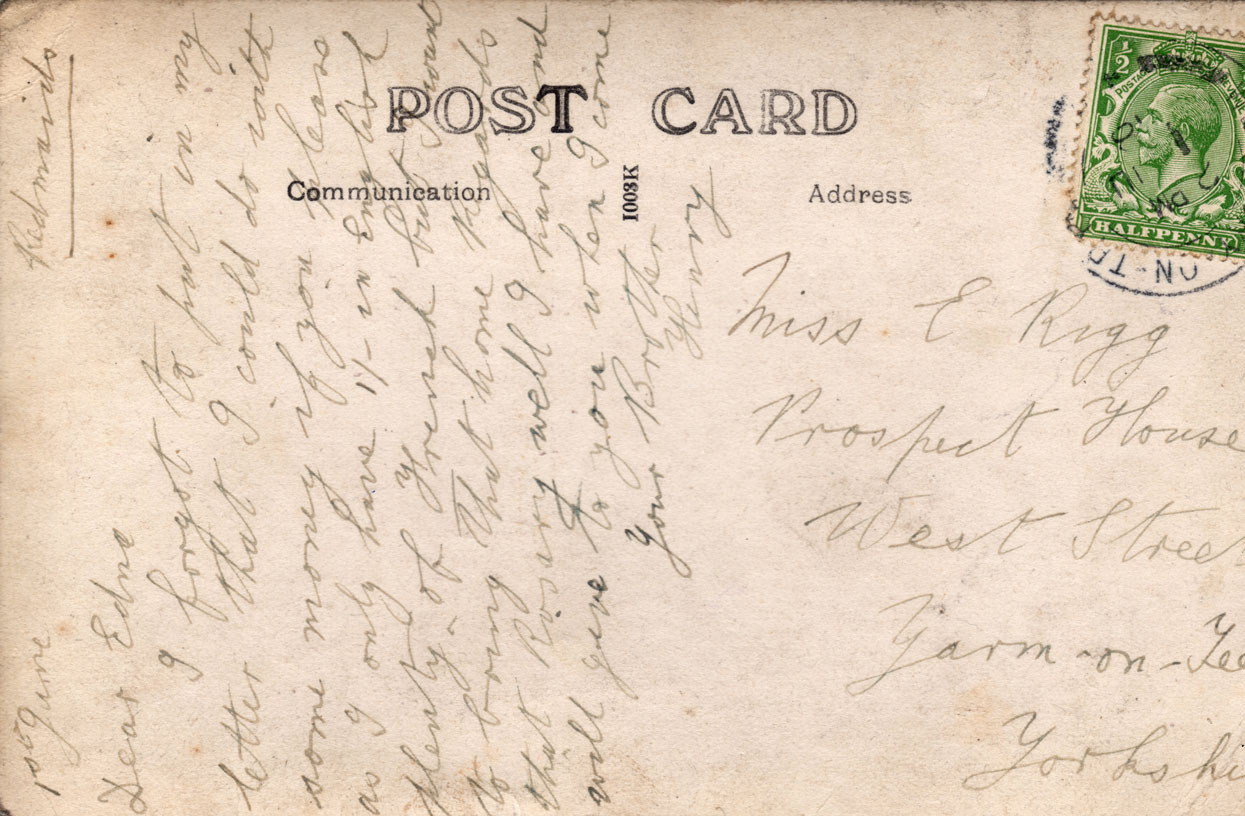 POST CARD
Communication
Address
1003K
½
POSTAGE
REVENUE
HALFPENNY
ON-T
Redmaids
1st June
Dear Edna
I forgot to put in my
letter that I could do with
some money if you please
as I only have 1/- in English
plenty of French but I want
to bring that home. Regards
that Rosary well I have and
will give to you when I come
Your Brother
Henry
Miss E Rigg
Prospect House
West Street
Yarm-on-Tee
Yorkshi